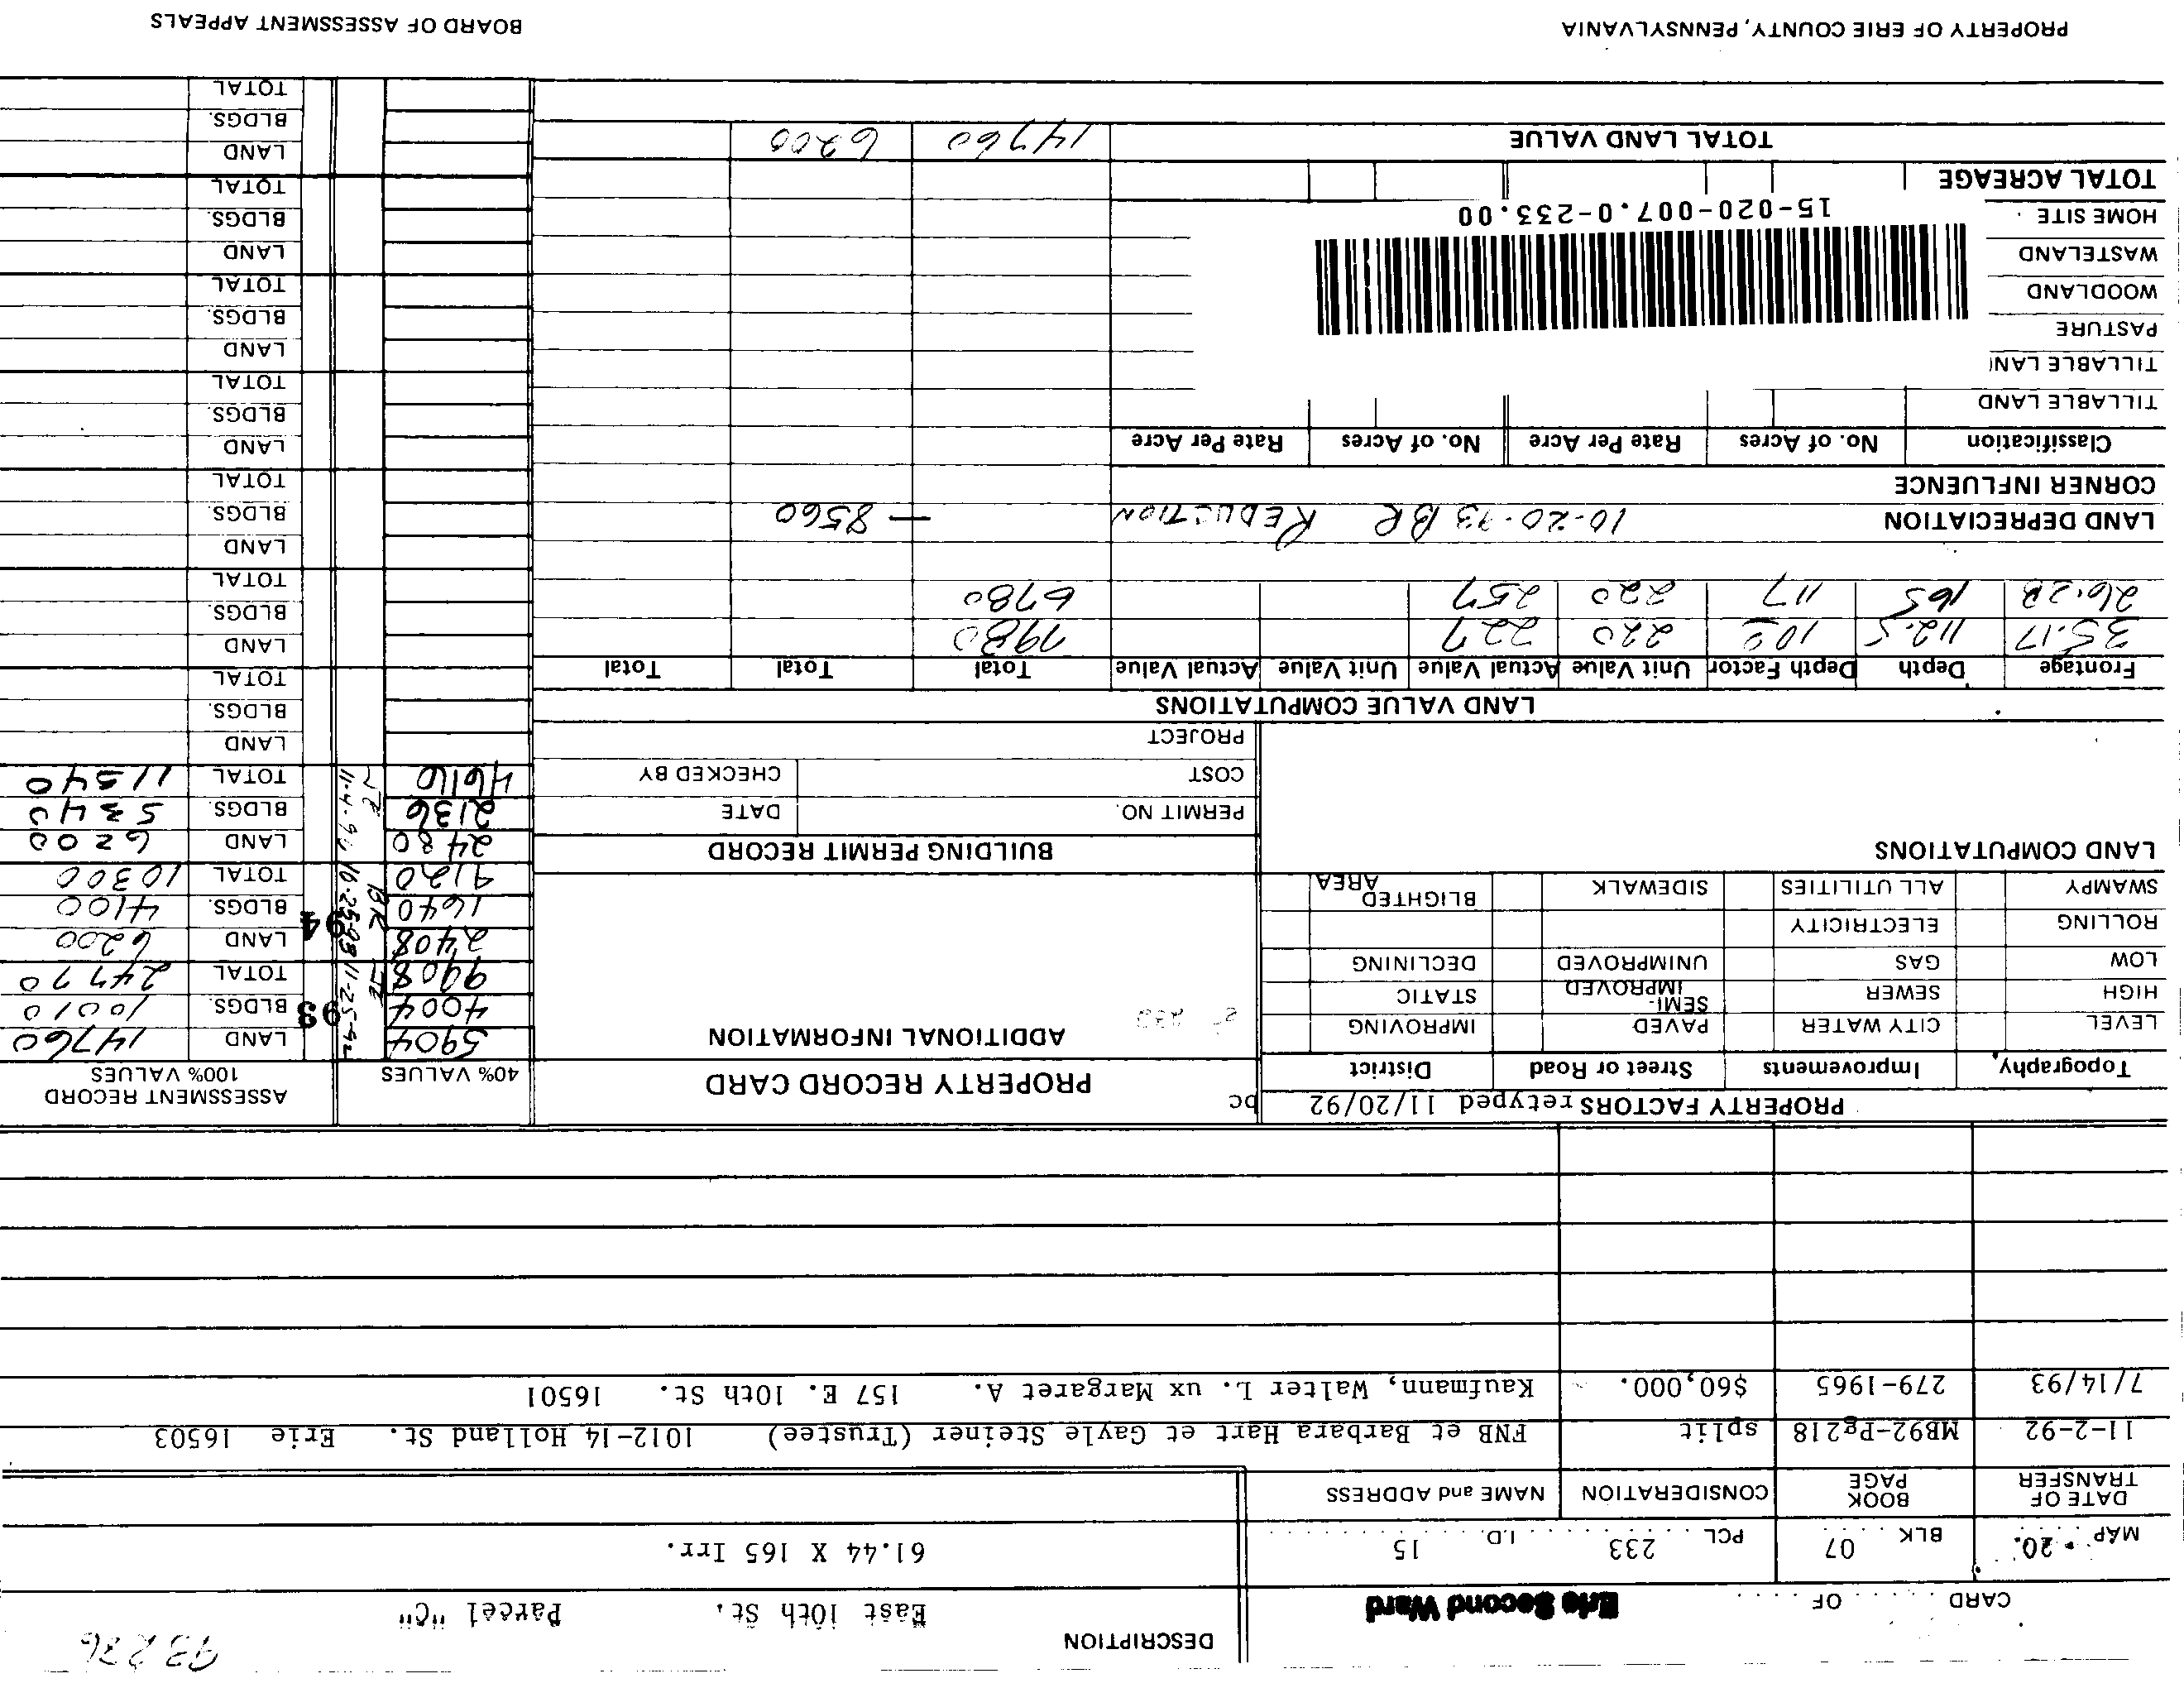 93236
CARD . . . . . OF . . . . . Erie Second Ward
DESCRIPTION
East 10th St. Parcel "C"
MAP 20. BLK 07 PCL 233 I.D. 15
61.44 X 165 Irr.
DATE OF TRANSFER BOOK PAGE CONSIDERATION NAME and ADDRESS
11-2-92 MB92-Pg218 split FNB et Barbara Hart et Gayle Steiner (Trustee) 1012-14 Holland St. Erie 16503
7/14/93 279-1965 $60,000. Kaufmann, Walter L. ux Margaret A. 157 E. 10th St. 16501
PROPERTY FACTORS retyped 11/20/92 bc
Topography Improvements Street or Road District
LEVEL CITY WATER PAVED IMPROVING
HIGH SEWER SEMI-IMPROVED STATIC
LOW GAS UNIMPROVED DECLINING
ROLLING ELECTRICITY
SWAMPY ALL UTILITIES SIDEWALK BLIGHTED AREA
LAND COMPUTATIONS
PROPERTY RECORD CARD
ADDITIONAL INFORMATION
BUILDING PERMIT RECORD
PERMIT NO. DATE
COST CHECKED BY
PROJECT
40% VALUES ASSESSMENT RECORD 100% VALUES
5904 LAND 14760
4004 11-25-92 93 BLDGS. 10010
9908 TOTAL 24770
2408 LAND 6200
1640 BR 10-25-93 94 BLDGS. 4100
4120 TOTAL 10300
2480 LAND 6200
2136 BLDGS. 5340
4616 TOTAL 11540
LAND
BLDGS.
TOTAL
LAND
BLDGS.
TOTAL
LAND
BLDGS.
TOTAL
LAND
BLDGS.
TOTAL
LAND
BLDGS.
TOTAL
LAND
BLDGS.
TOTAL
LAND
BLDGS.
TOTAL
LAND VALUE COMPUTATIONS
Frontage Depth Depth Factor Unit Value Actual Value Unit Value Actual Value Total Total Total
35.17 112.5 103 220 227 7980
26.28 165 117 220 257 6780
LAND DEPRECIATION 10-20-93 BR REDUCTION — 8560
CORNER INFLUENCE
Classification No. of Acres Rate Per Acre No. of Acres Rate Per Acre
TILLABLE LAND
TILLABLE LAN
PASTURE
WOODLAND
WASTELAND
HOME SITE
15-020-007.0-233.00
TOTAL ACREAGE
TOTAL LAND VALUE 14760 6200
PROPERTY OF ERIE COUNTY, PENNSYLVANIA BOARD OF ASSESSMENT APPEALS